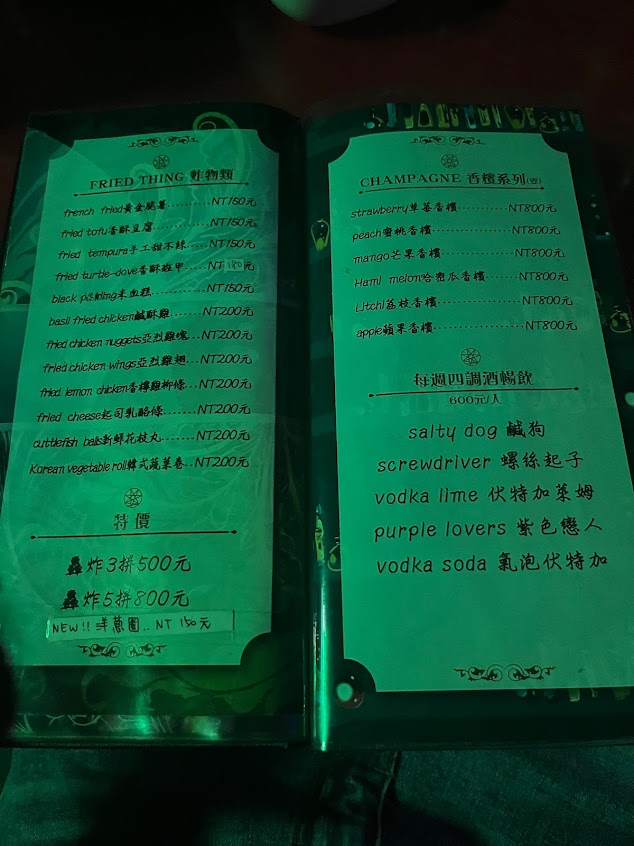 FRIED THING 炸物類
french fried黃金脆薯..........NT150元
fried tofu香酥豆腐............NT150元
fried tempura手工甜不辣.....NT150元
fried turtle-dove香酥斑甲.....NT180元
black pudding米血糕............NT150元
basil fried chicken鹹酥雞.......NT200元
fried chicken nuggets亞烈雞塊...NT200元
fried chicken wings亞烈雞翅...NT200元
fried lemon chicken香檸雞柳條...NT200元
fried cheese起司乳酪條......NT200元
cuttlefish balls新鮮花枝丸.......NT200元
Korean vegetable roll韓式蔬菜卷..NT200元
特價
炸3拼500元
炸5拼800元
NEW!! 洋蔥圈.. NT 150元
CHAMPAGNE 香檳系列(壹)
strawberry草莓香檳..........NT800元
peach蜜桃香檳................NT800元
mango芒果香檳...............NT800元
Hami melon哈密瓜香檳........NT800元
Litchi荔枝香檳.................NT800元
apple蘋果香檳.................NT800元
每週四調酒暢飲
600元/人
salty dog 鹹狗
screwdriver 螺絲起子
vodka lime 伏特加萊姆
purple lovers 紫色戀人
vodka soda 氣泡伏特加